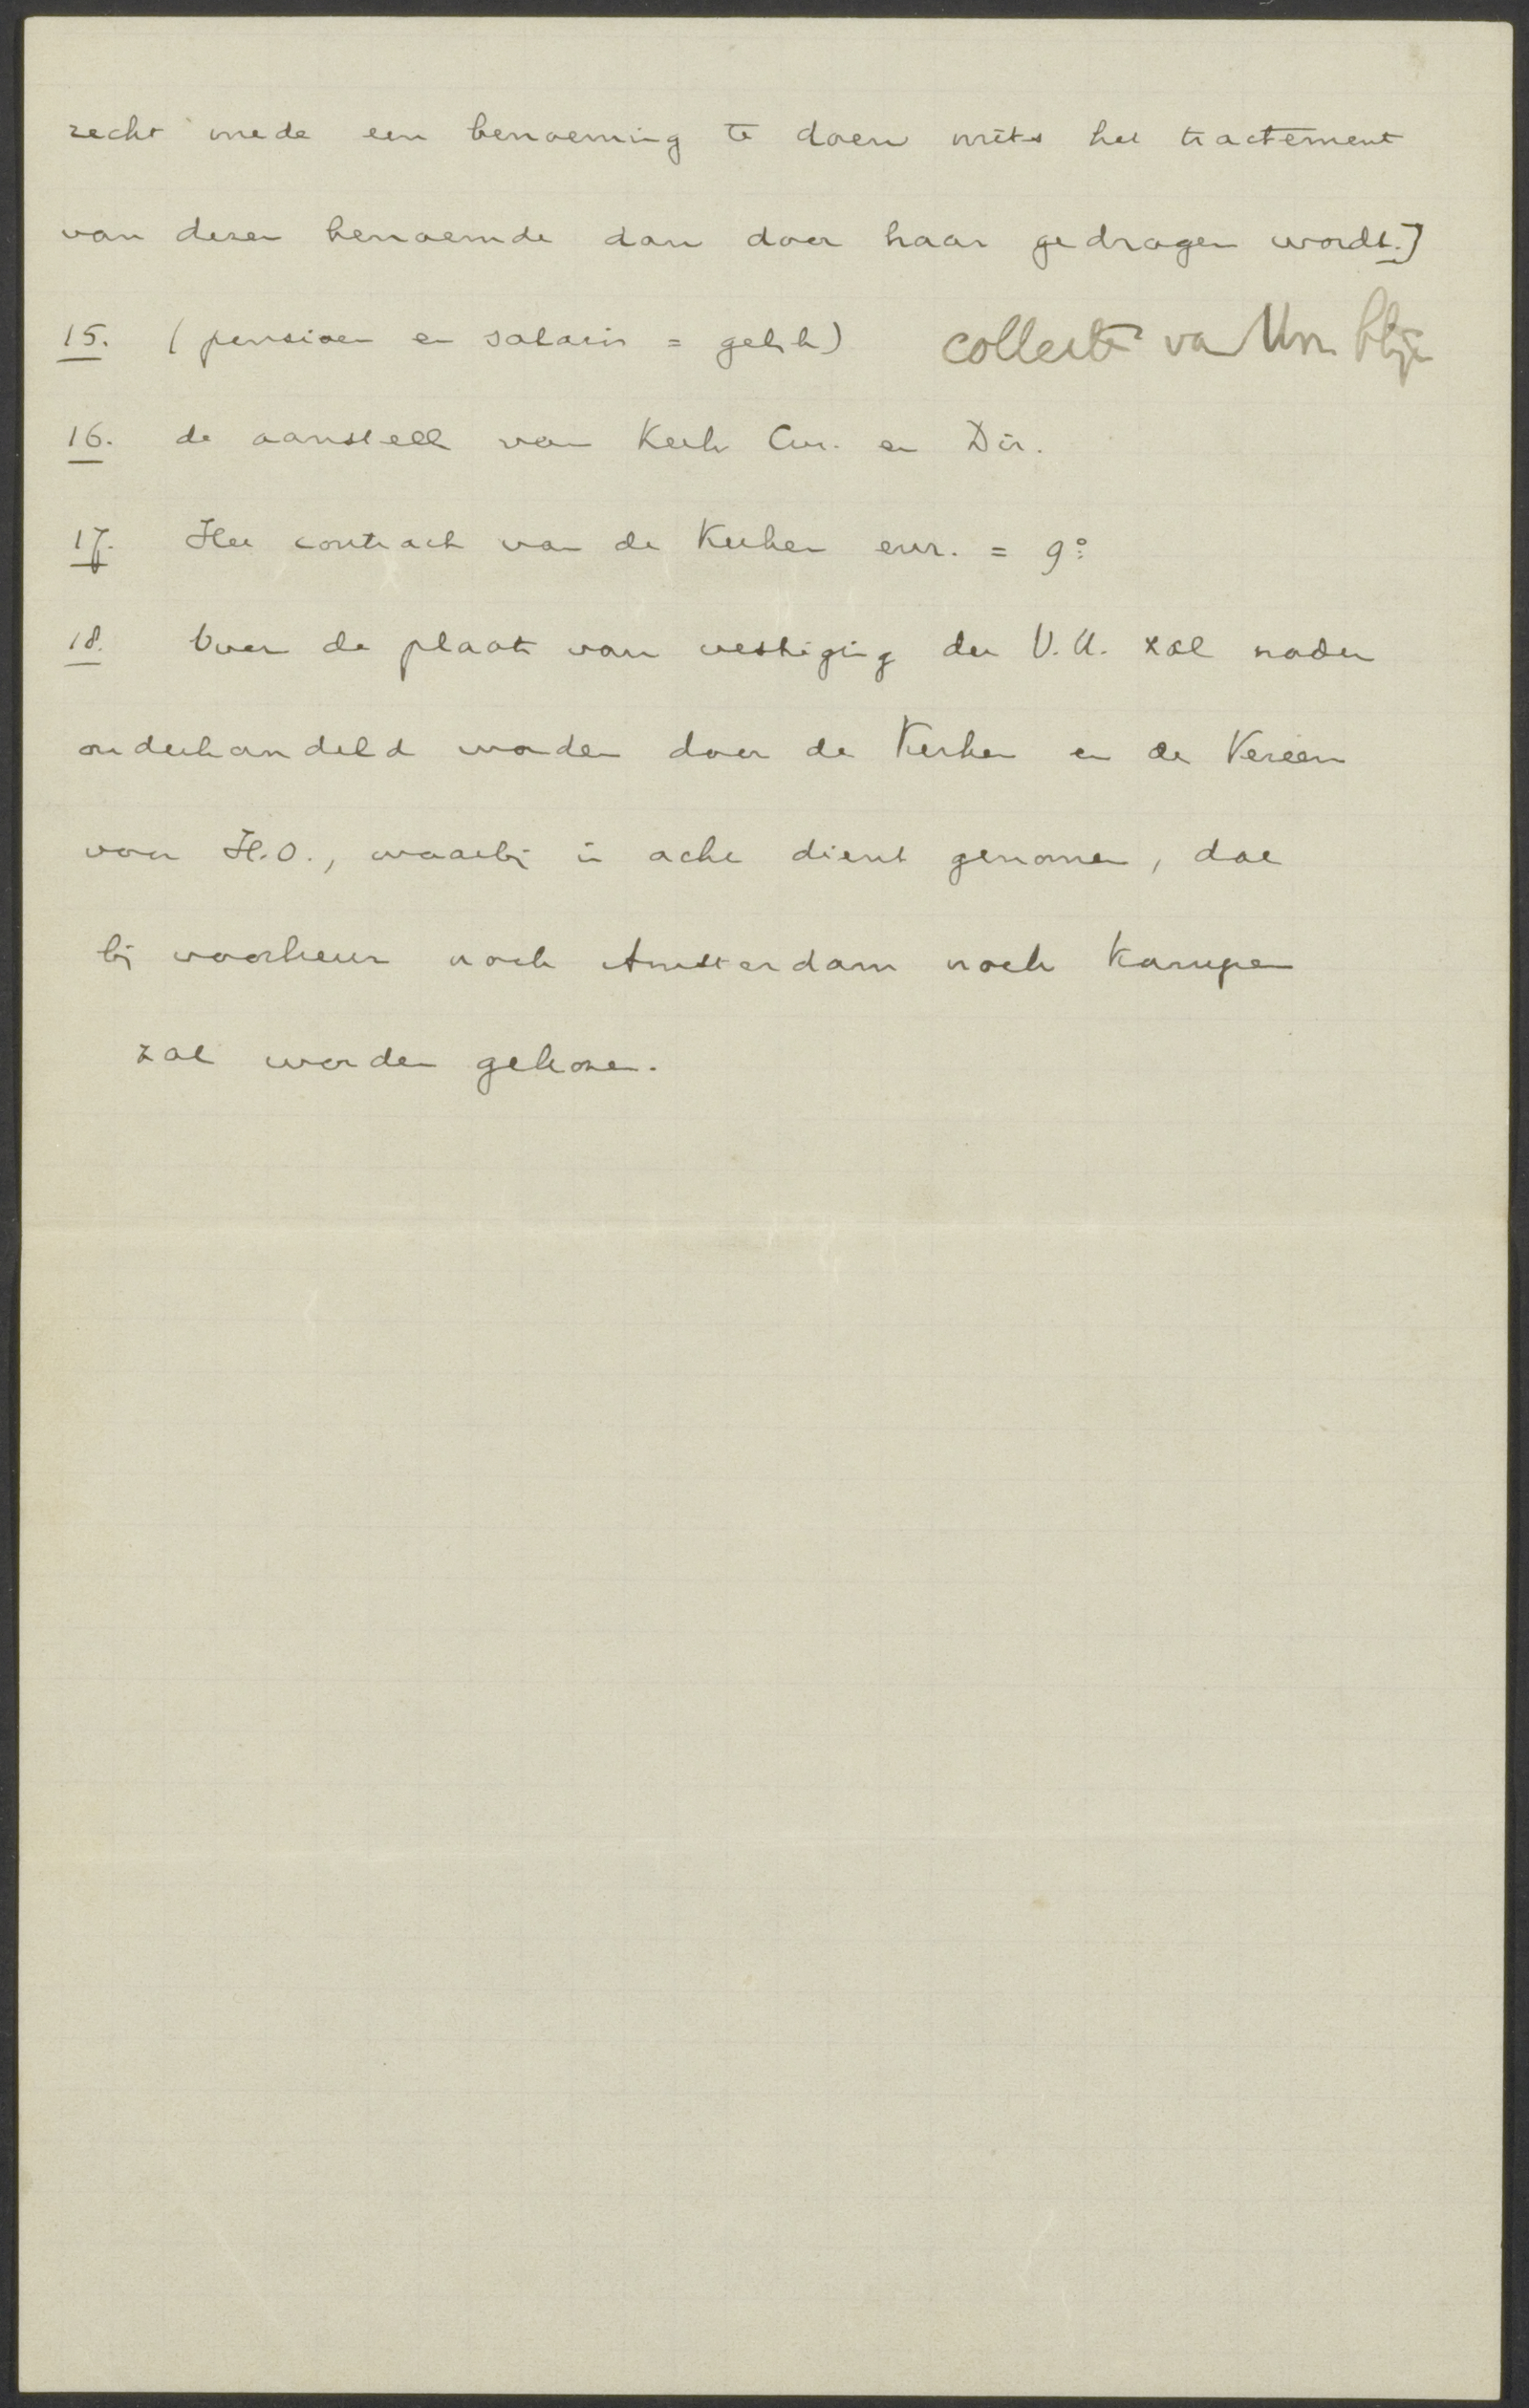 recht mede een benoeming te doen mits het tractement
van dezen benoemde dan door haar gedragen wordt.]
15. (pensioen en salaris = gelijk) collecte van Un. blijve
16. de aanstell van Kerk Cur. en Dir.
17. Het contract van de Kerken enz. = 9o
18. Over de plaats van vestiging der V.U. zal nader
onderhandeld worden door de Kerken en de Vereen
voor H.O., waarbij in acht dient genomen, dat
bij voorkeur noch Amsterdam noch Kampen
zal worden gekozen.